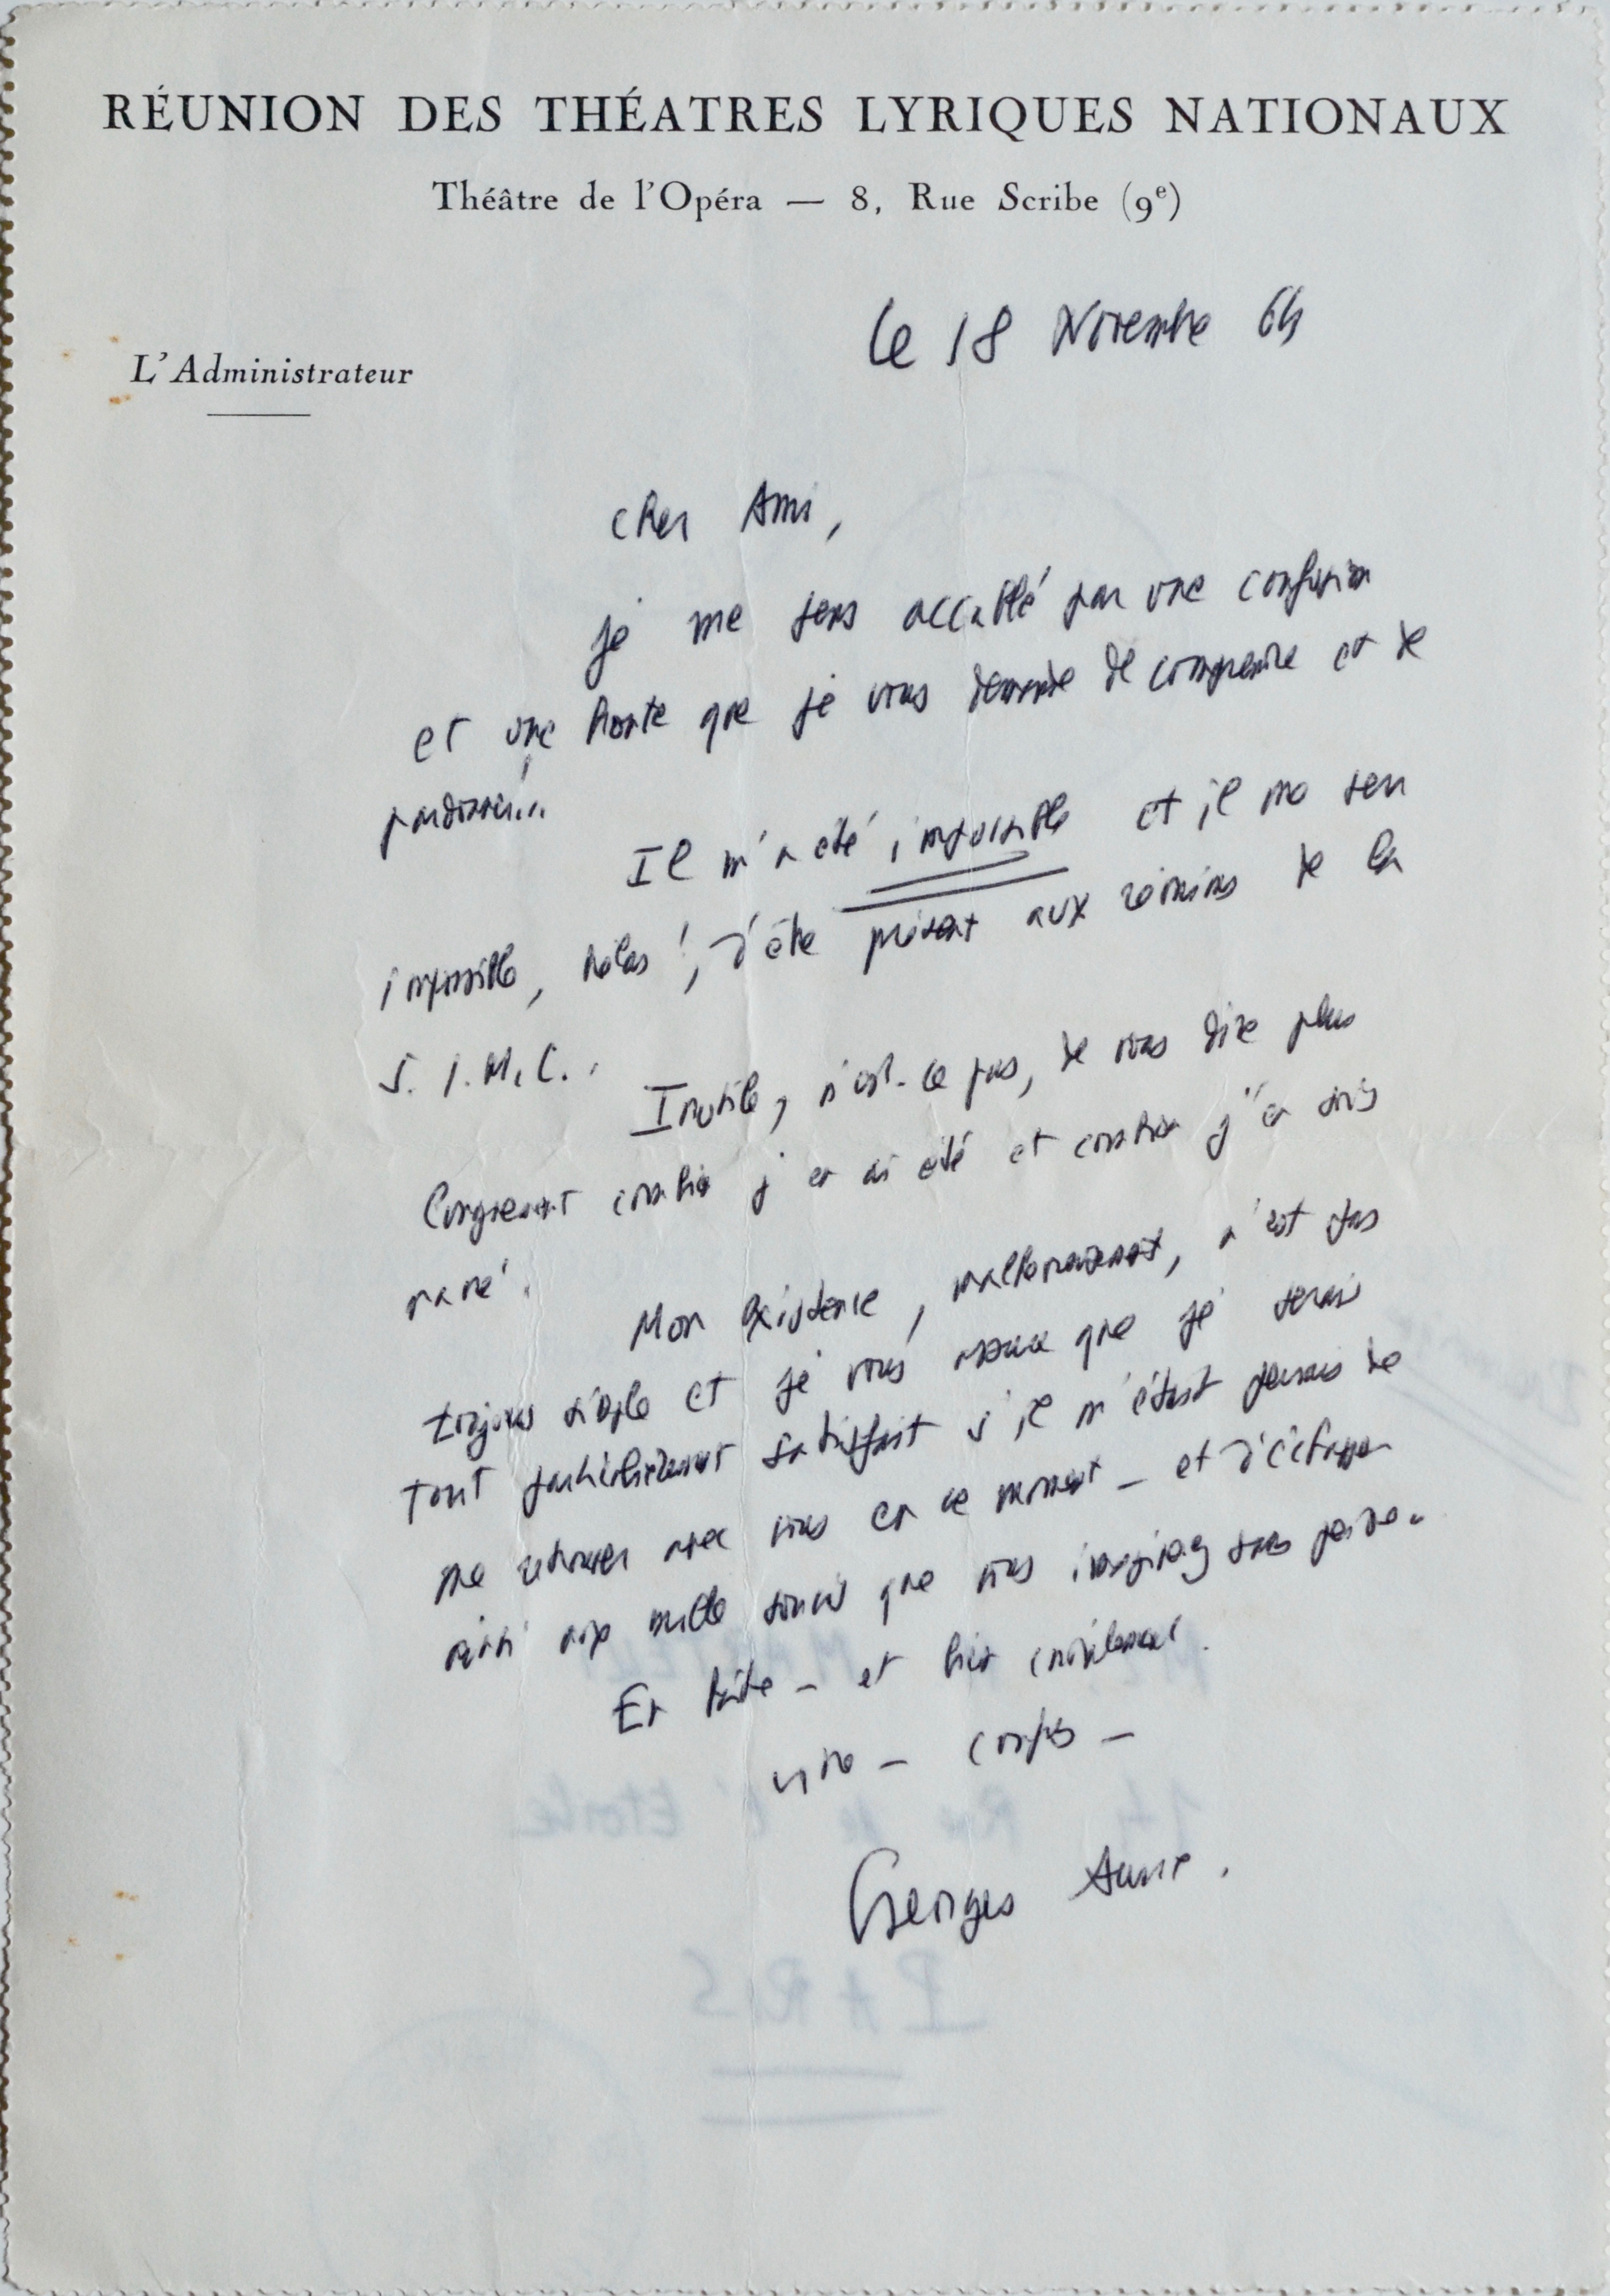 RÉUNION DES THÉATRES LYRIQUES NATIONAUX
Théâtre de l'Opéra — 8, Rue Scribe (9e)
Le 18 Novembre 64
L'Administrateur
Cher Ami,
je me sens accablé par une confusion
et une honte que je vous demande de comprendre et de
pardonner...
Il m'a été impossible et il me sera
impossible, hélas !, d'être présent aux réunions de la
S. I. M. C..
Inutile, n'est-ce pas, de vous dire plus
longuement combien j'en ai été et combien j'en suis
navré.
Mon existence, malheureusement, n'est pas
toujours simple et je vous assure que je serais
tout particulièrement satisfait s'il m'était permis de
me retrouver avec vous en ce moment — et d'échapper
ainsi aux mille soucis que vous imaginez sans peine.
En hâte — et bien cordialement.
Georges Auric.
14 Rue de l'Etoile
PARIS